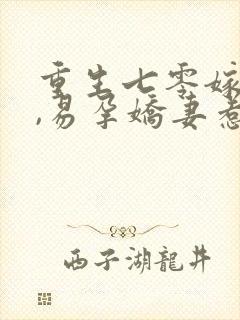 重生七零嫁
,易孕娇妻惹
西子湖龍井